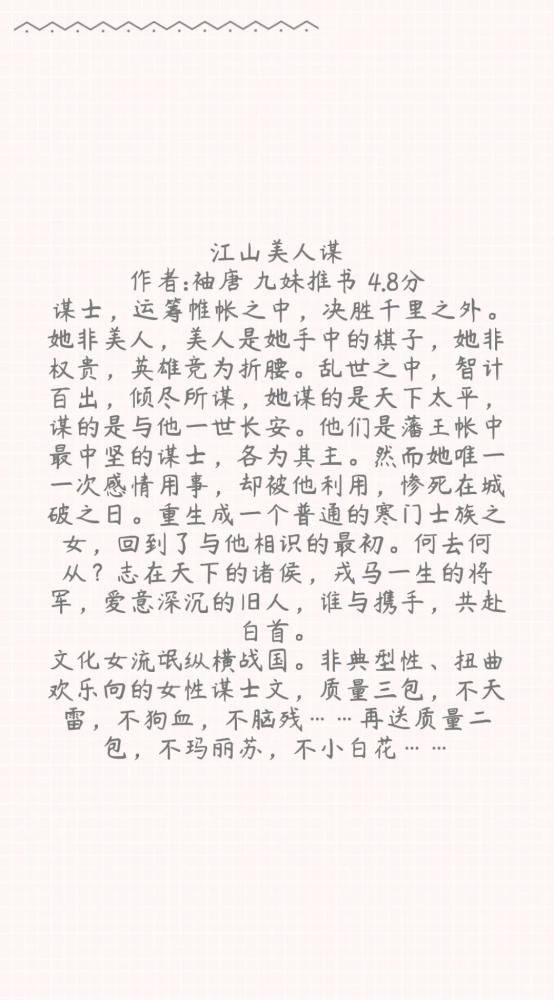 江山美人谋
作者:袖唐 九妹推书 4.8分
谋士，运筹帷帐之中，决胜千里之外。
她非美人，美人是她手中的棋子，她非
权贵，英雄竞为折腰。乱世之中，智计
百出，倾尽所谋，她谋的是天下太平，
谋的是与他一世长安。他们是藩王帐中
最中坚的谋士，各为其主。然而她唯一
一次感情用事，却被他利用，惨死在城
破之日。重生成一个普通的寒门士族之
女，回到了与他相识的最初。何去何
从？志在天下的诸侯，戎马一生的将
军，爱意深沉的旧人，谁与携手，共赴
白首。
文化女流氓纵横战国。非典型性、扭曲
欢乐向的女性谋士文，质量三包，不天
雷，不狗血，不脑残……再送质量二
包，不玛丽苏，不小白花……